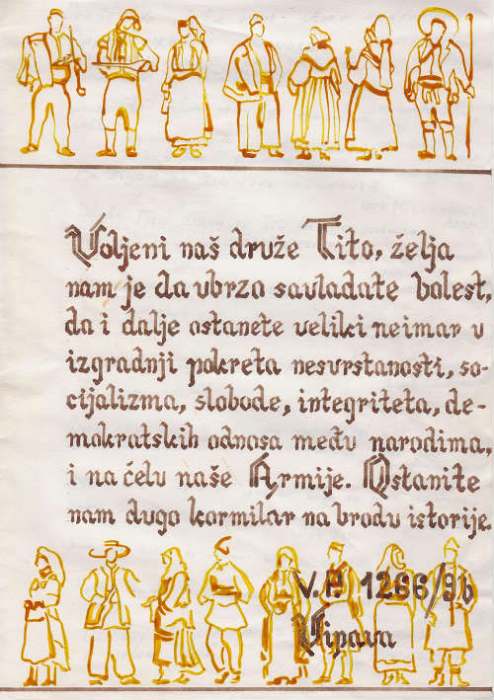 Voljeni naš druže Tito, želja
nam je da ubrzo savladate bolest,
da i dalje ostanete veliki neimar u
izgradnji pokreta nesvrstanosti, so-
cijalizma, slobode, integriteta, de-
mokratskih odnosa među narodima,
i na čelu naše Armije. Ostanite
nam dugo kormilar na brodu istorije.
V. P. 1266/9b
Vipava